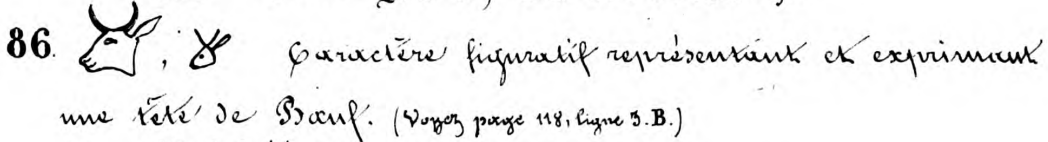 86. , Caractère figuratif représentant et exprimant
une tête de Bœuf. (Voyez page 118, ligne 3.B.)